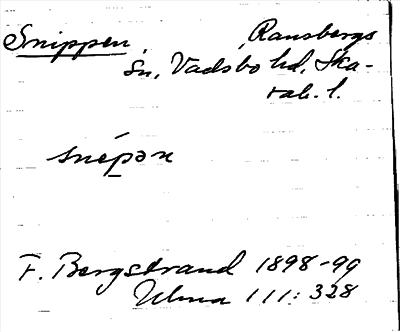 Snippen, Ransbergs
sn, Vadsbo hd, Ska-
rab. l.
snép̱ən
F. Bergstrand 1898-99
Ulma 111: 328